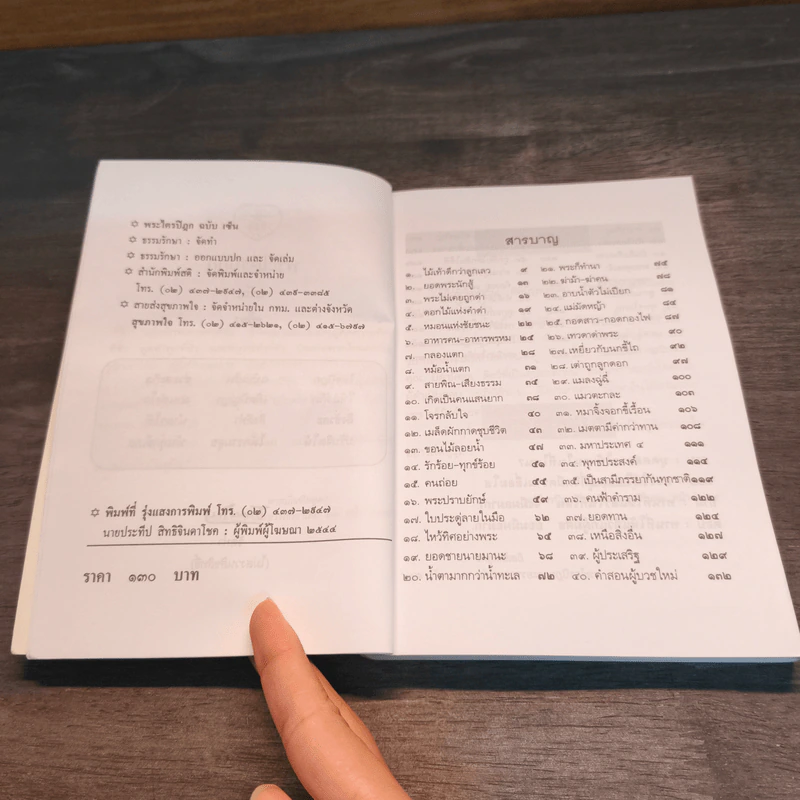 ✡ พระไตรปิฎก ฉบับ เซ็น
✡ ธรรมรักษา : จัดทำ
✡ ธรรมรักษา : ออกแบบปก และ จัดเล่ม
✡ สำนักพิมพ์สติ : จัดพิมพ์และจำหน่าย
โทร. (๐๒) ๔๓๗-๒๕๔๗, (๐๒) ๔๓๕-๓๓๘๕
✡ สายส่งสุขภาพใจ : จัดจำหน่ายใน กทม. และต่างจังหวัด
สุขภาพใจ โทร. (๐๒) ๔๑๕-๒๖๒๑, (๐๒) ๔๑๕-๖๗๕๗
✡ พิมพ์ที่ รุ่งแสงการพิมพ์ โทร. (๐๒) ๔๓๗-๒๕๔๗
นายประทีป สิทธิจินดาโชค : ผู้พิมพ์ผู้โฆษณา ๒๕๔๔
ราคา ๑๓๐ บาท
สารบาญ
๑. ไม้เท้าดีกว่าลูกเลว ๙ ๒๑. พระก็ทำนา ๗๕
๒. ยอดพระนักสู้ ๑๓ ๒๒. ฆ่าม้า-ฆ่าคน ๗๘
๓. พระไม่เคยถูกด่า ๑๖ ๒๓. อาบน้ำตัวไม่เปียก ๘๑
๔. ดอกไม้แห่งคำด่า ๑๙ ๒๔. แม่มัดหญ้า ๘๔
๕. หมอนแห่งชัยชนะ ๒๒ ๒๕. กอดสาว-กอดกองไฟ ๘๗
๖. อาหารคน-อาหารพรหม ๒๕ ๒๖. เทวดาด่าพระ ๙๐
๗. กลองแตก ๒๘ ๒๗. เหยี่ยวกับนกขี้ไถ ๙๒
๘. หม้อน้ำแตก ๓๑ ๒๘. เต่าถูกลูกดอก ๙๗
๙. สายพิณ-เสียงธรรม ๓๕ ๒๙. แมลงกุฉี่ ๑๐๐
๑๐. เกิดเป็นคนแสนยาก ๓๘ ๓๐. แมวตะกละ ๑๐๓
๑๑. โจรกลับใจ ๔๐ ๓๑. หมาจิ้งจอกขี้เรื้อน ๑๐๖
๑๒. เมล็ดผักกาดชุบชีวิต ๔๓ ๓๒. เมตตามีค่ากว่าทาน ๑๐๘
๑๓. ขอนไม้ลอยน้ำ ๔๗ ๓๓. มหาประเทศ ๔ ๑๑๑
๑๔. รักร้อย-ทุกข์ร้อย ๕๑ ๓๔. พุทธประสงค์ ๑๑๔
๑๕. คนถ่อย ๕๕ ๓๕. เป็นสามีภรรยากันทุกชาติ ๑๑๙
๑๖. พระปราบยักษ์ ๕๙ ๓๖. คนฟ้าคำราม ๑๒๒
๑๗. ใบประดู่ลายในมือ ๖๒ ๓๗. ยอดทาน ๑๒๔
๑๘. ไหว้ทิศอย่างพระ ๖๕ ๓๘. เหนือสิ่งอื่น ๑๒๗
๑๙. ยอดชายนายมานะ ๖๘ ๓๙. ผู้ประเสริฐ ๑๒๙
๒๐. น้ำตามากกว่าน้ำทะเล ๗๒ ๔๐. คำสอนผู้บวชใหม่ ๑๓๒